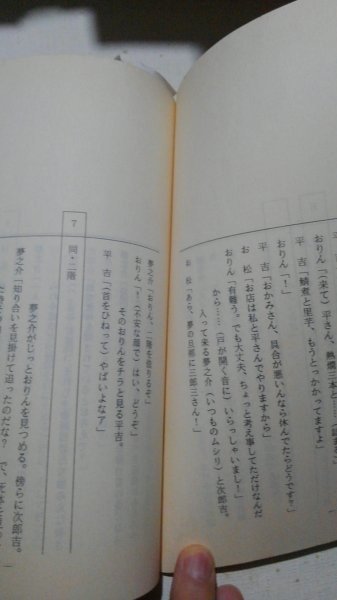 おりん「(来て)平さん、熱燗三本と……
平　吉「鯖煮と里芋、もうとっかかってますよ」
おりん「！」
平　吉「おかみさん、具合が悪いんなら休んでたらどうです？」
お　松「お店は私と平さんでやりますから」
おりん「有難う。でも大丈夫、ちょっと考え事してただけなんだ
から……(戸が開く音に)いらっしゃいまし！」
入って来る夢之介(いつものムシリ)と次郎吉。
お　松「あら、夢の旦那に三郎三さん！」
夢之介「おりん、二階を借りるぞ」
おりん「！(不安な顔で)はい、どうぞ」
そのおりんをチラと見る平吉。
平　吉「(首をひねって)やばいよなァ」
7　同・二階
夢之介がじっとおりんを見つめる。傍らに次郎吉。
夢之介「知り合いを見掛けて追ったのだな？　で、